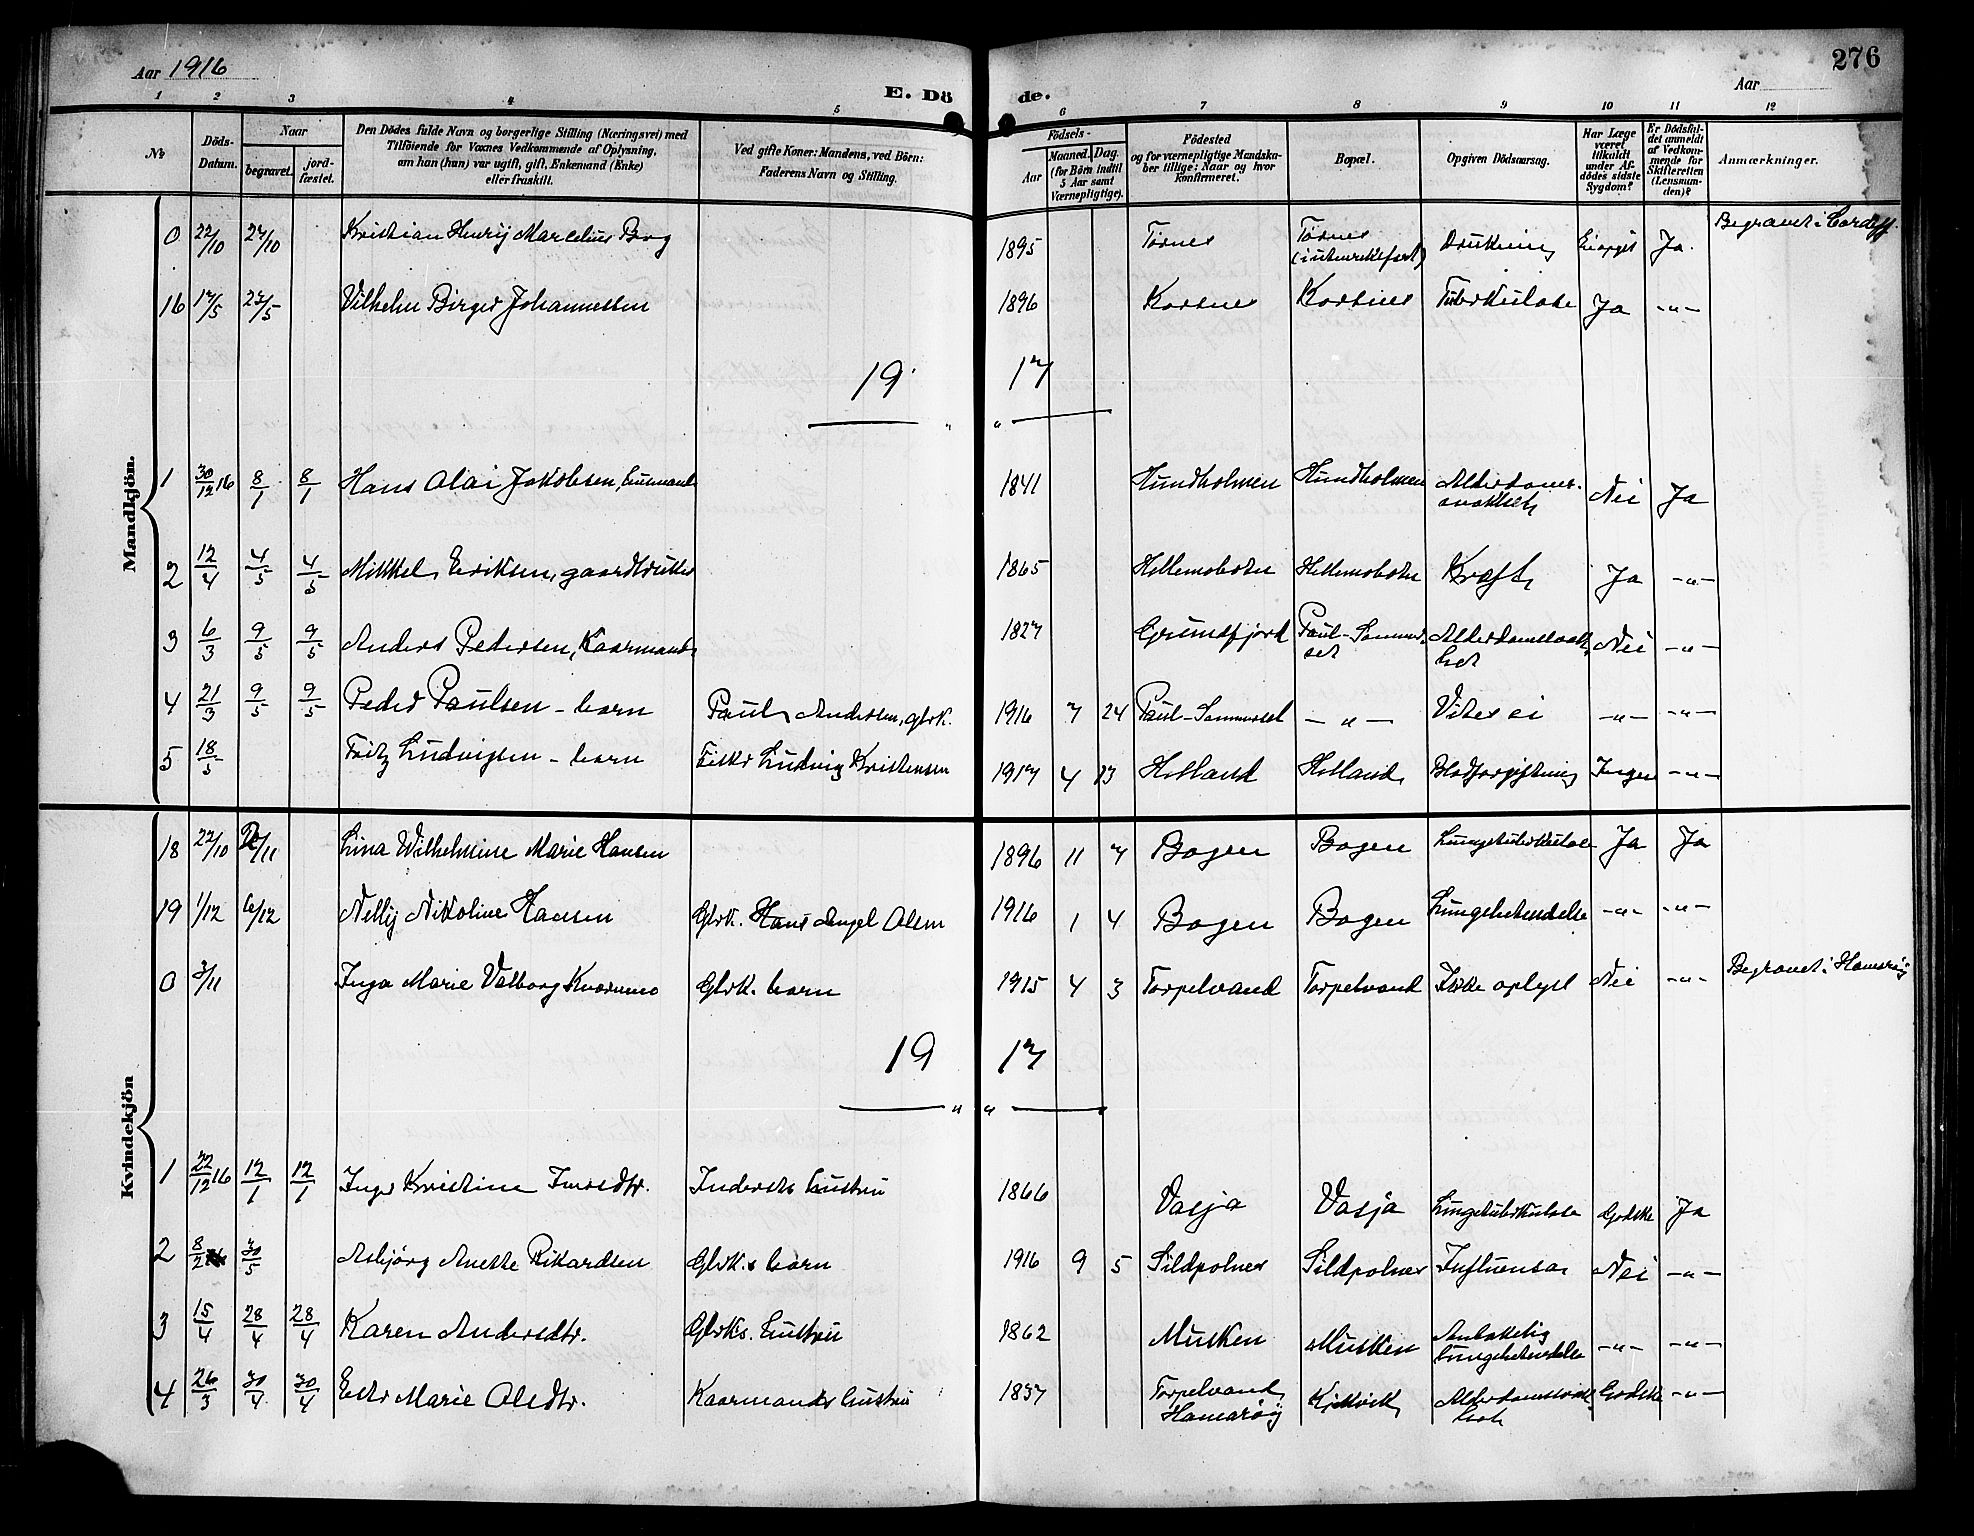 276
Aar 1916
Aar
E. Dö de.
1 2 3 4 5 6 7 8 9 10 11 12
No
Döds-Datum.
Naar
begravet.
jordfæstet.
Den Dödes fulde Navn og borgerlige Stilling (Næringsvei) med
Tilföiende for Voxnes Vedkommende af Oplysning,
om han (hun) var ugift, gift, Enkemand (Enke)
eller fraskilt.
Ved gifte Koner: Mandens, ved Börn:
Faderens Navn og Stilling.
Födsels-
Aar
Maaned. Dag.
(for Börn indtil
5 Aar samt
Værnepligtige).
Födested
og for værnepligtige Mandska-
ber tillige: Naar og hvor
konfirmeret.
Bopæl.
Opgiven Dödsaarsag.
Har Læge
været
tilkaldt
under Af-
dödes sidste
Sygdom?
Er Dödsfal-
det anmeldt
af Vedkom-
mende for
Skifteretten
(Lensman-
den)?
Anmærkninger.
Mandkjön.
0 22/10 27/10 Kristian Henrij Marcelius Bog 1895 Tørnes Tørnes Drukning Ei opgit Ja. Begravet i Cardeff
16 17/5 27/5 Vilhelm Birger Johannessen 1896 Korsnes Korsnes Tuberkulose Ja -"-
19 17
1 30/12 16 8/1 8/1 Hans Olai Jakobsen, 1841 Hundholmen Hundholmen Alderdoms- Nei Ja
2 12/4 4/5 4/5 Mikkel Eriksen, 1865 Hellemobotn Hellemobotn Kræft Ja -"-
3 6/3 9/5 9/5 Anders Pedersen, Kaarmand 1827 Grundfjord Paul-Sommerset Alderdomssvakhet Nei -"-
4 21/3 9/5 9/5 Peder Paulsen - barn Paul Andersen, gbrk. 1916 7 24 Paul-Sommerset -"- Vites ei -"- -"-
5 18/5 Fritz Ludvigsen - barn Fisker Ludvig Kristensen 1917 4 13 Helland Helland Blodforgiftning Ingen -"-
Kvindekjön
18 22/10 /11 Lina Wilhelmine Marie Hansen 1896 11 7 Bogen Bogen Lungetuberkulose Ja Ja
19 1/12 6/12 Nellij Nikoline Hansen Gbrk. Hans Angel Olsen 1916 1 4 Bogen Bogen Lungebetendelse -"- -"-
0 3/11 Inga Marie Valborg Kværnmo Gbrk. barn 1915 4 3 Torpelvand Torpelvand Ikke oplyst Nei -"- Begravet i Hamarøy
19 17
1 22/12 16 12/1 12/1 Inger Kristine Inderstes hustru 1866 Vasja Vasja Lungetuberkulose Godske Ja
2 8/2 30/5 Asbjørg Anette Rikardsen Gbrk.s barn 1916 9 5 Sildpolnes Sildpolnes Influensa Nei -"-
3 15/4 28/4 28/4 Karen Andersdtr. Gbrks. hustru 1862 Musken Musken lungebetendelse -"- -"-
4 26/3 30/4 30/4 Ester Marie Olsdtr. Kaarmands hustru 1837 Torpelvand Hamarøij Kjøkvik Alderdomssvakhet Godske -"-